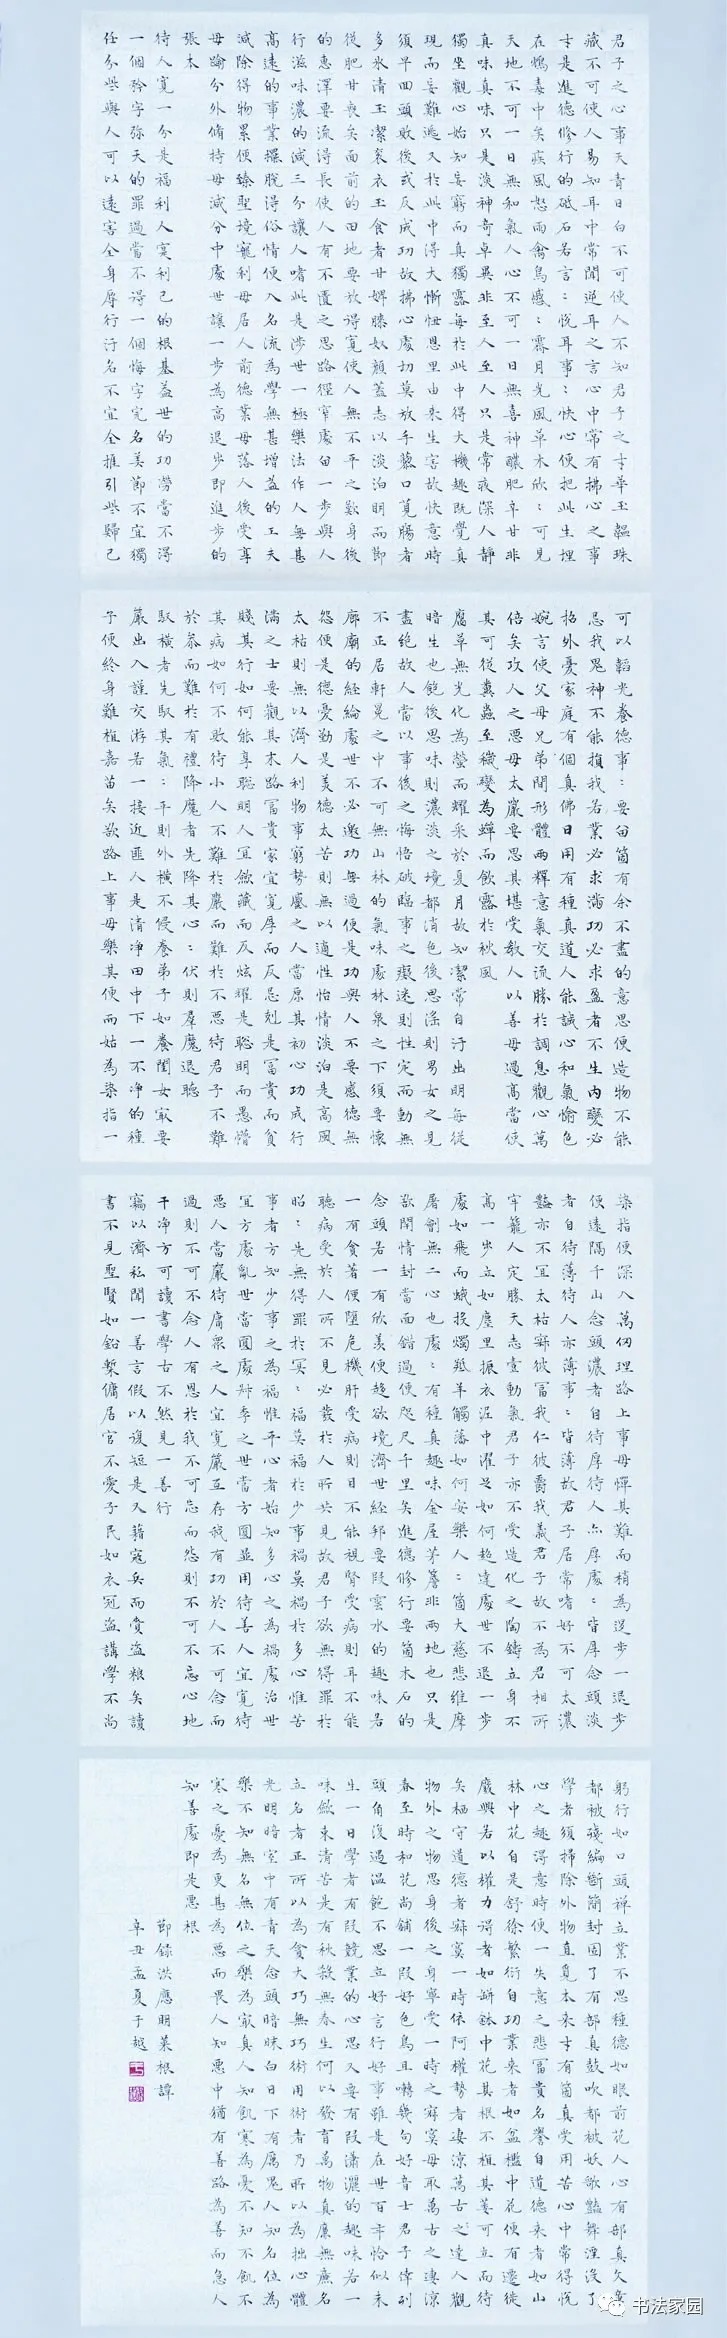 君子之心事天青日白不可使人不知君子之才華玉韞珠
藏不可使人易知耳中常聞逆耳之言心中常有拂心之事
才是進德修行的砥石若言：悅耳事：快心便把此生埋
在鴆毒中矣疾風怒雨禽鳥慼：霽月光風草木欣：可見
天地不可一日無和氣人心不可一日無喜神醲肥辛甘非
真味真味只是淡神奇卓異非至人至人只是常夜深人靜
獨坐觀心始知妄窮而真獨露每於此中得大機趣既覺真
現而妄難逃又於此中得大慚忸恩里由來生害故快意時
須早回頭敗後或反成功故拂心處切莫放手藜口莧腸者
多氷清玉潔袞衣玉食者甘婢膝奴顏蓋志以淡泊明而節
從肥甘喪矣面前的田地要放得寬使人無不平之歎身後
的惠澤要流得長使人有不匱之思路徑窄處留一步與人
行滋味濃的減三分讓人嗜此是涉世一極樂法作人無甚
高遠的事業擺脫得俗情便入名流為學無甚增益的工夫
減除得物累便臻聖境寵利毋居人前德業毋落人後受享
毋踰分外脩持毋減分中處世讓一步為高退步即進步的
張本
待人寬一分是福利人寔利己的根基蓋世的功勞當不得
一個矜字弥天的罪過當不得一個悔字完名美節不宜獨
任分些與人可以遠害全身辱行汙名不宜全推引些歸己
可以韜光養德事：要留箇有余不盡的意思便造物不能
忌我鬼神不能損我若業必求滿功必求盈者不生內變必
招外憂家庭有個真佛日用有種真道人能誠心和氣愉色
婉言使父母兄弟間形體兩釋意氣交流勝於調息觀心萬
倍矣攻人之惡毋太嚴要思其堪受教人以善毋過高當使
其可從糞蟲至穢變為蟬而飲露於秋風
腐草無光化為螢而耀采於夏月故知潔常自汙出明每從
暗生也飽後思味則濃淡之境都消色後思淫則男女之見
盡絕故人當以事後之悔悟破臨事之癡迷則性定而動無
不正居軒冕之中不可無山林的氣味處林泉之下須要懷
廊廟的經綸處世不必邀功無過便是功與人不要感德無
怨便是德憂勤是美德太苦則無以適性怡情淡泊是高風
太枯則無以濟人利物事窮勢蹙之人當原其初心功成行
滿之士要觀其末路富貴家宜寬厚而反忌剋是富貴而貧
賤其行如何能享聰明人宜斂藏而反炫耀是聰明而愚懵
其病如何不敗待小人不難於嚴而難於不惡待君子不難
於恭而難於有禮降魔者先降其心：伏則羣魔退聽
馭橫者先馭其氣：平則外橫不侵養弟子如養閨女最要
嚴出入謹交游若一接近匪人是清凈田中下一不凈的種
子便終身難植嘉苗矣欲路上事毋樂其便而姑為染指一
染指便深入萬仞理路上事毋憚其難而稍為退步一退步
便遠隔千山念頭濃者自待厚待人亦厚處：皆厚念頭淡
者自待薄待人亦薄事：皆薄故君子居常嗜好不可太濃
豔亦不宜太枯寂彼富我仁彼爵我義君子故不為君相所
牢籠人定勝天志壹動氣君子亦不受造化之陶鑄立身不
高一步立如塵里振衣泥中濯足如何超達處世不退一步
處如飛而蛾投燭羝羊觸藩如何安樂人：箇大慈悲維摩
屠劊無二心也處：有種真趣味金屋茅簷非兩地也只是
欲閉情封當面錯過便咫尺千里矣進德修行要箇木石的
念頭若一有欣羨便趨欲境濟世經邦要段雲水的趣味若
一有貪著便墮危機肝受病則目不能視腎受病則耳不能
聽病受於人所不見必發於人所共見故君子欲無得罪於
昭：先無得罪於冥：福莫福於少事禍莫禍於多心惟苦
事者方知少事之為福惟平心者始知多心之為禍處治世
宜方處亂世當圓處叔季之世當方圓並用待善人宜寬待
惡人當嚴待庸眾之人宜寬嚴互存我有功於人不可念而
過則不可不念人有恩於我不可忘而怨則不可不忘心地
干净方可讀書學古不然見一善行
竊以濟私聞一善言假以復短是又藉寇兵而賫盜粮矣讀
書不見聖賢如鉛槧傭居官不愛子民如衣冠盜講學不尚
躬行如口頭禪立業不思種德如眼前花人心有部真文章
都被殘編斷簡封固了有部真鼓吹都被妖歌豔舞湮沒了
學者須掃除外物直覓本來才有箇真受用苦心中常得悅
心之趣得意時便一失意之悲富貴名譽自道德來者如山
林中花自是舒徐繁衍自功業來者如盆檻中花便有遷徙
廢興若以權力得者如缾鉢中花其根不植其萎可立而待
矣棲守道德者寂寞一時依阿權勢者凄涼萬古之達人觀
物外之物思身後之身寧受一時之寂寞毋取萬古之凄涼
春至時和花尚鋪一段好色鳥且囀幾句好音士君子偉列
頭角復遇溫飽不思立好言行好事雖是在世百年恰似未
生一日學者有段兢業的心思又要有段瀟灑的趣味若一
味斂束清苦是有秋殺無春生何以發育萬物真廉無廉名
立名者正所以為貪大巧無巧術用術者乃所以為拙心體
光明暗室中有青天念頭暗昧白日下有厲鬼人知名位為
樂不知無名無位之樂為最真人知飢寒為憂不知不飢不
寒之憂為更甚為惡而畏人知惡中猶有善路為善而急人
知善處即是惡根
節錄洪應明菜根譚
辛丑孟夏于越
书法家园